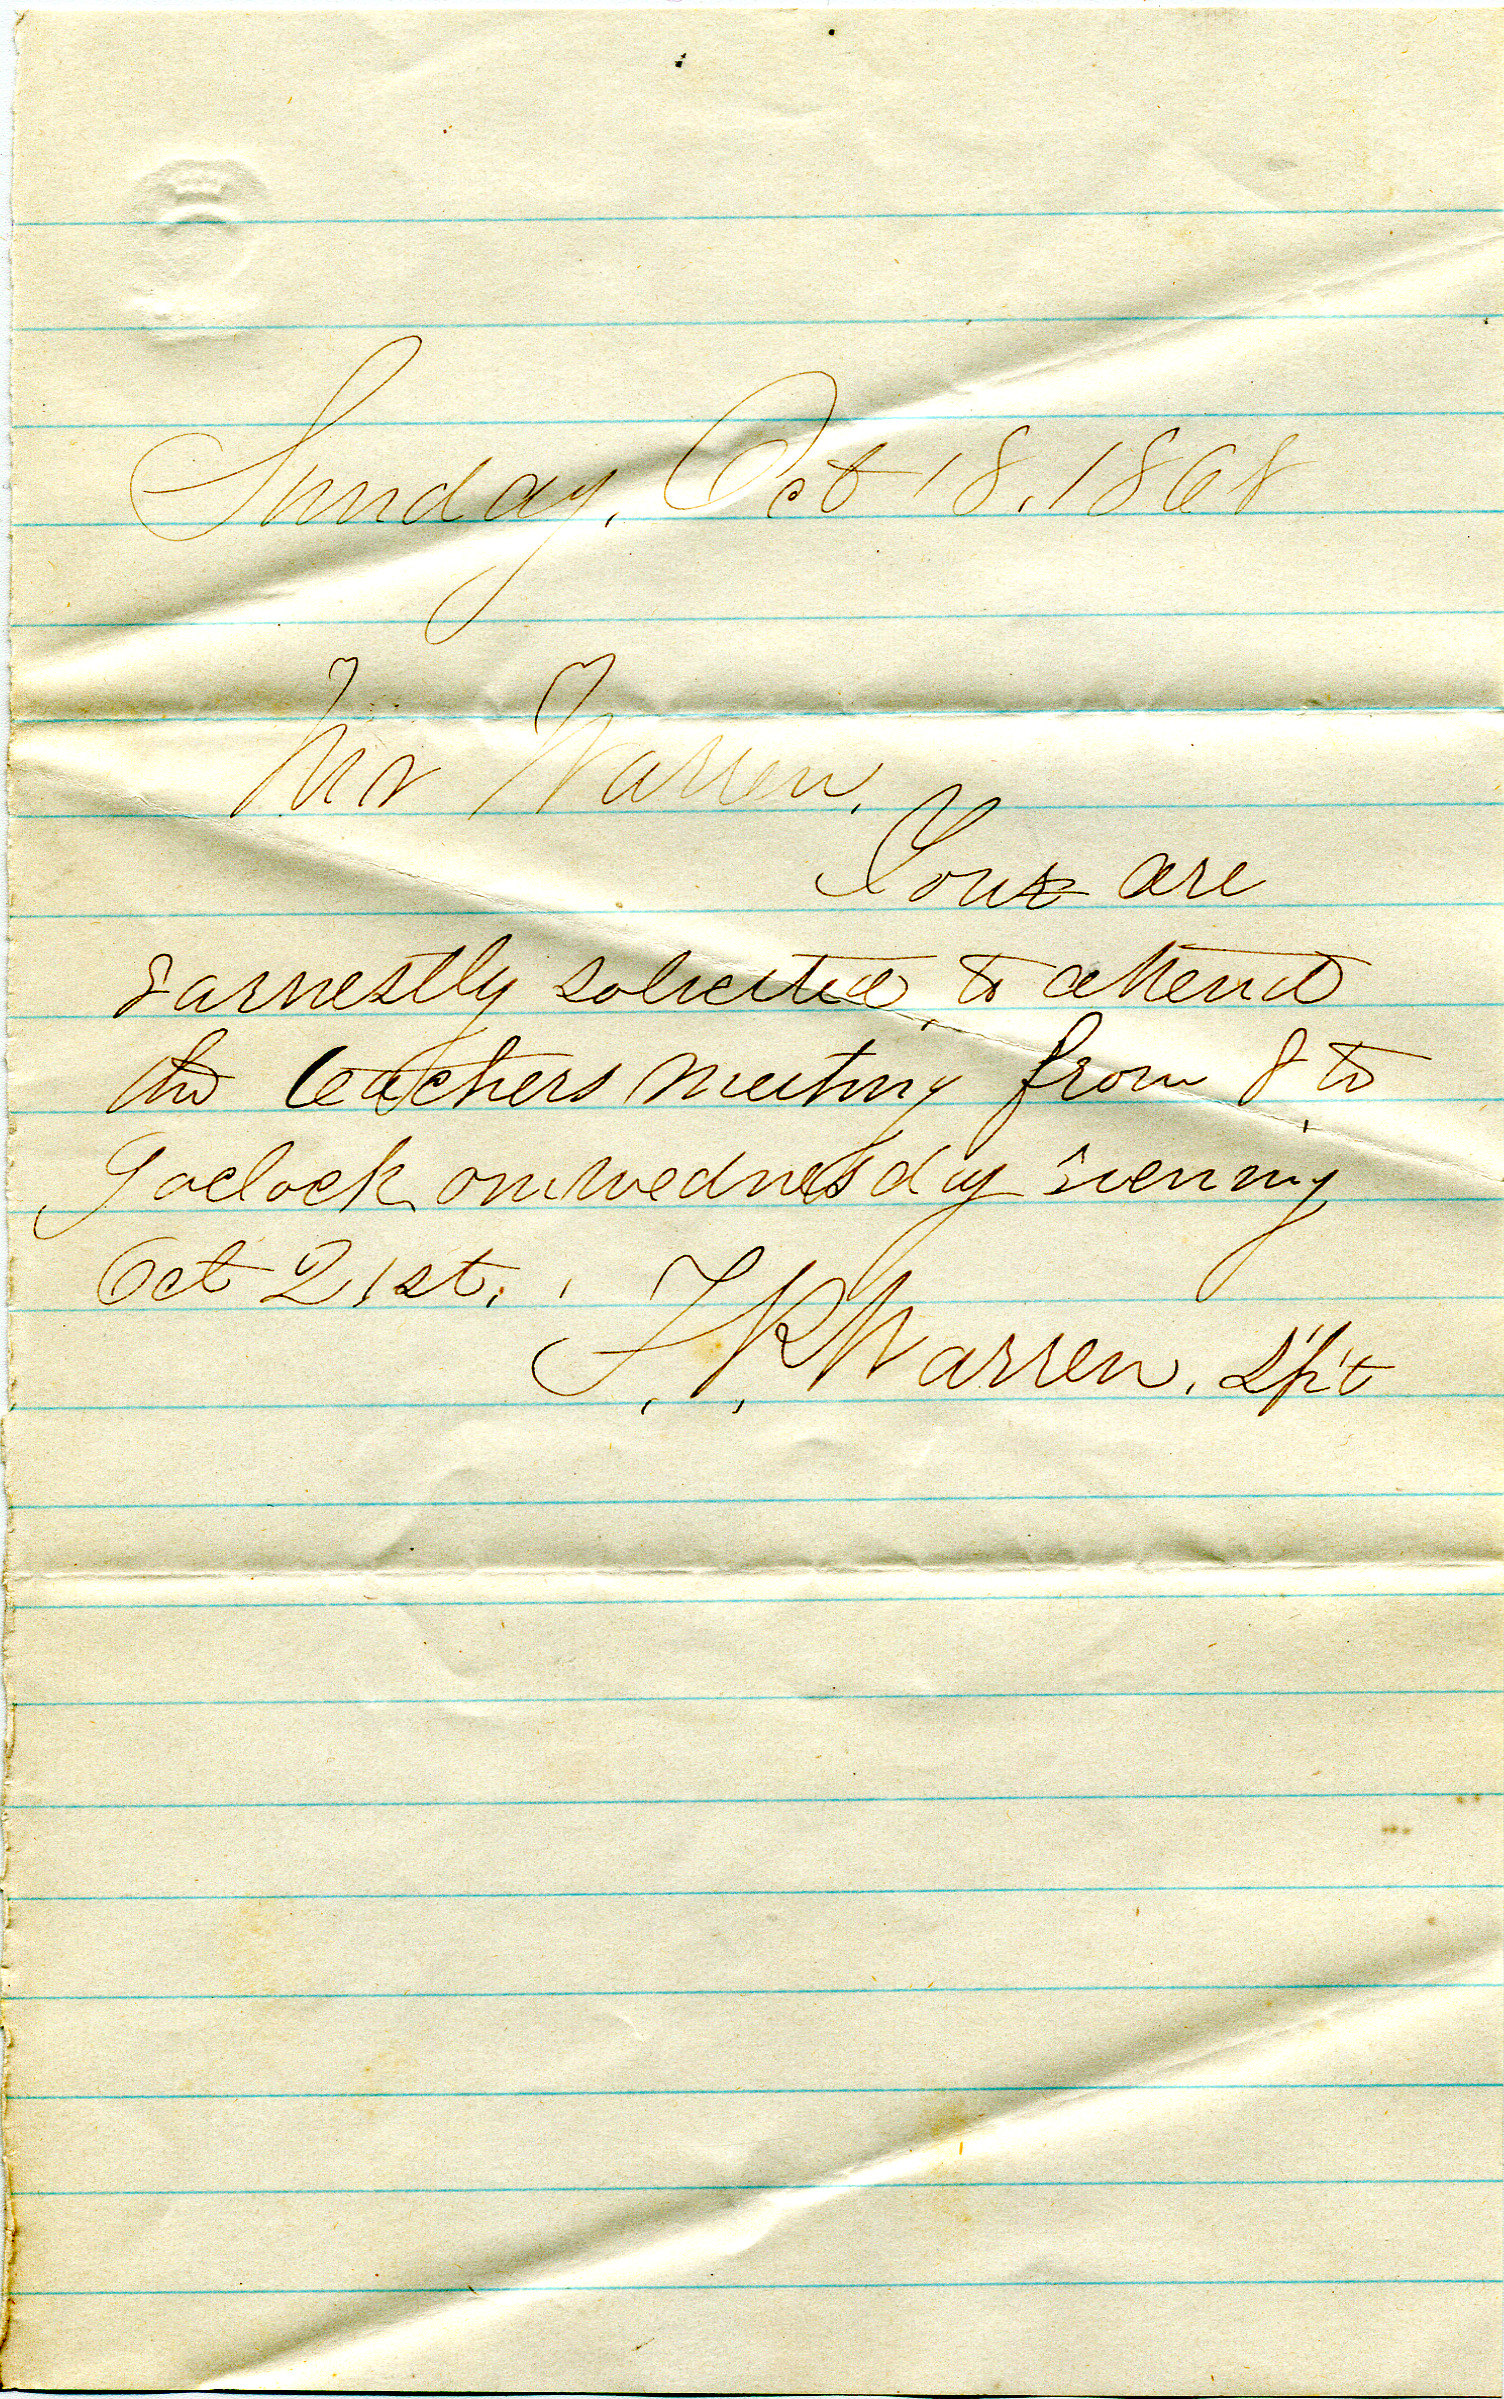 Sunday, Oct 18, 1868
Mr Warren,
You are
earnestly solicited, to attend
the teachers meeting from 8 to
9 oclock on wednesday evening
Oct 21st.
F, K, Warren, Sp't